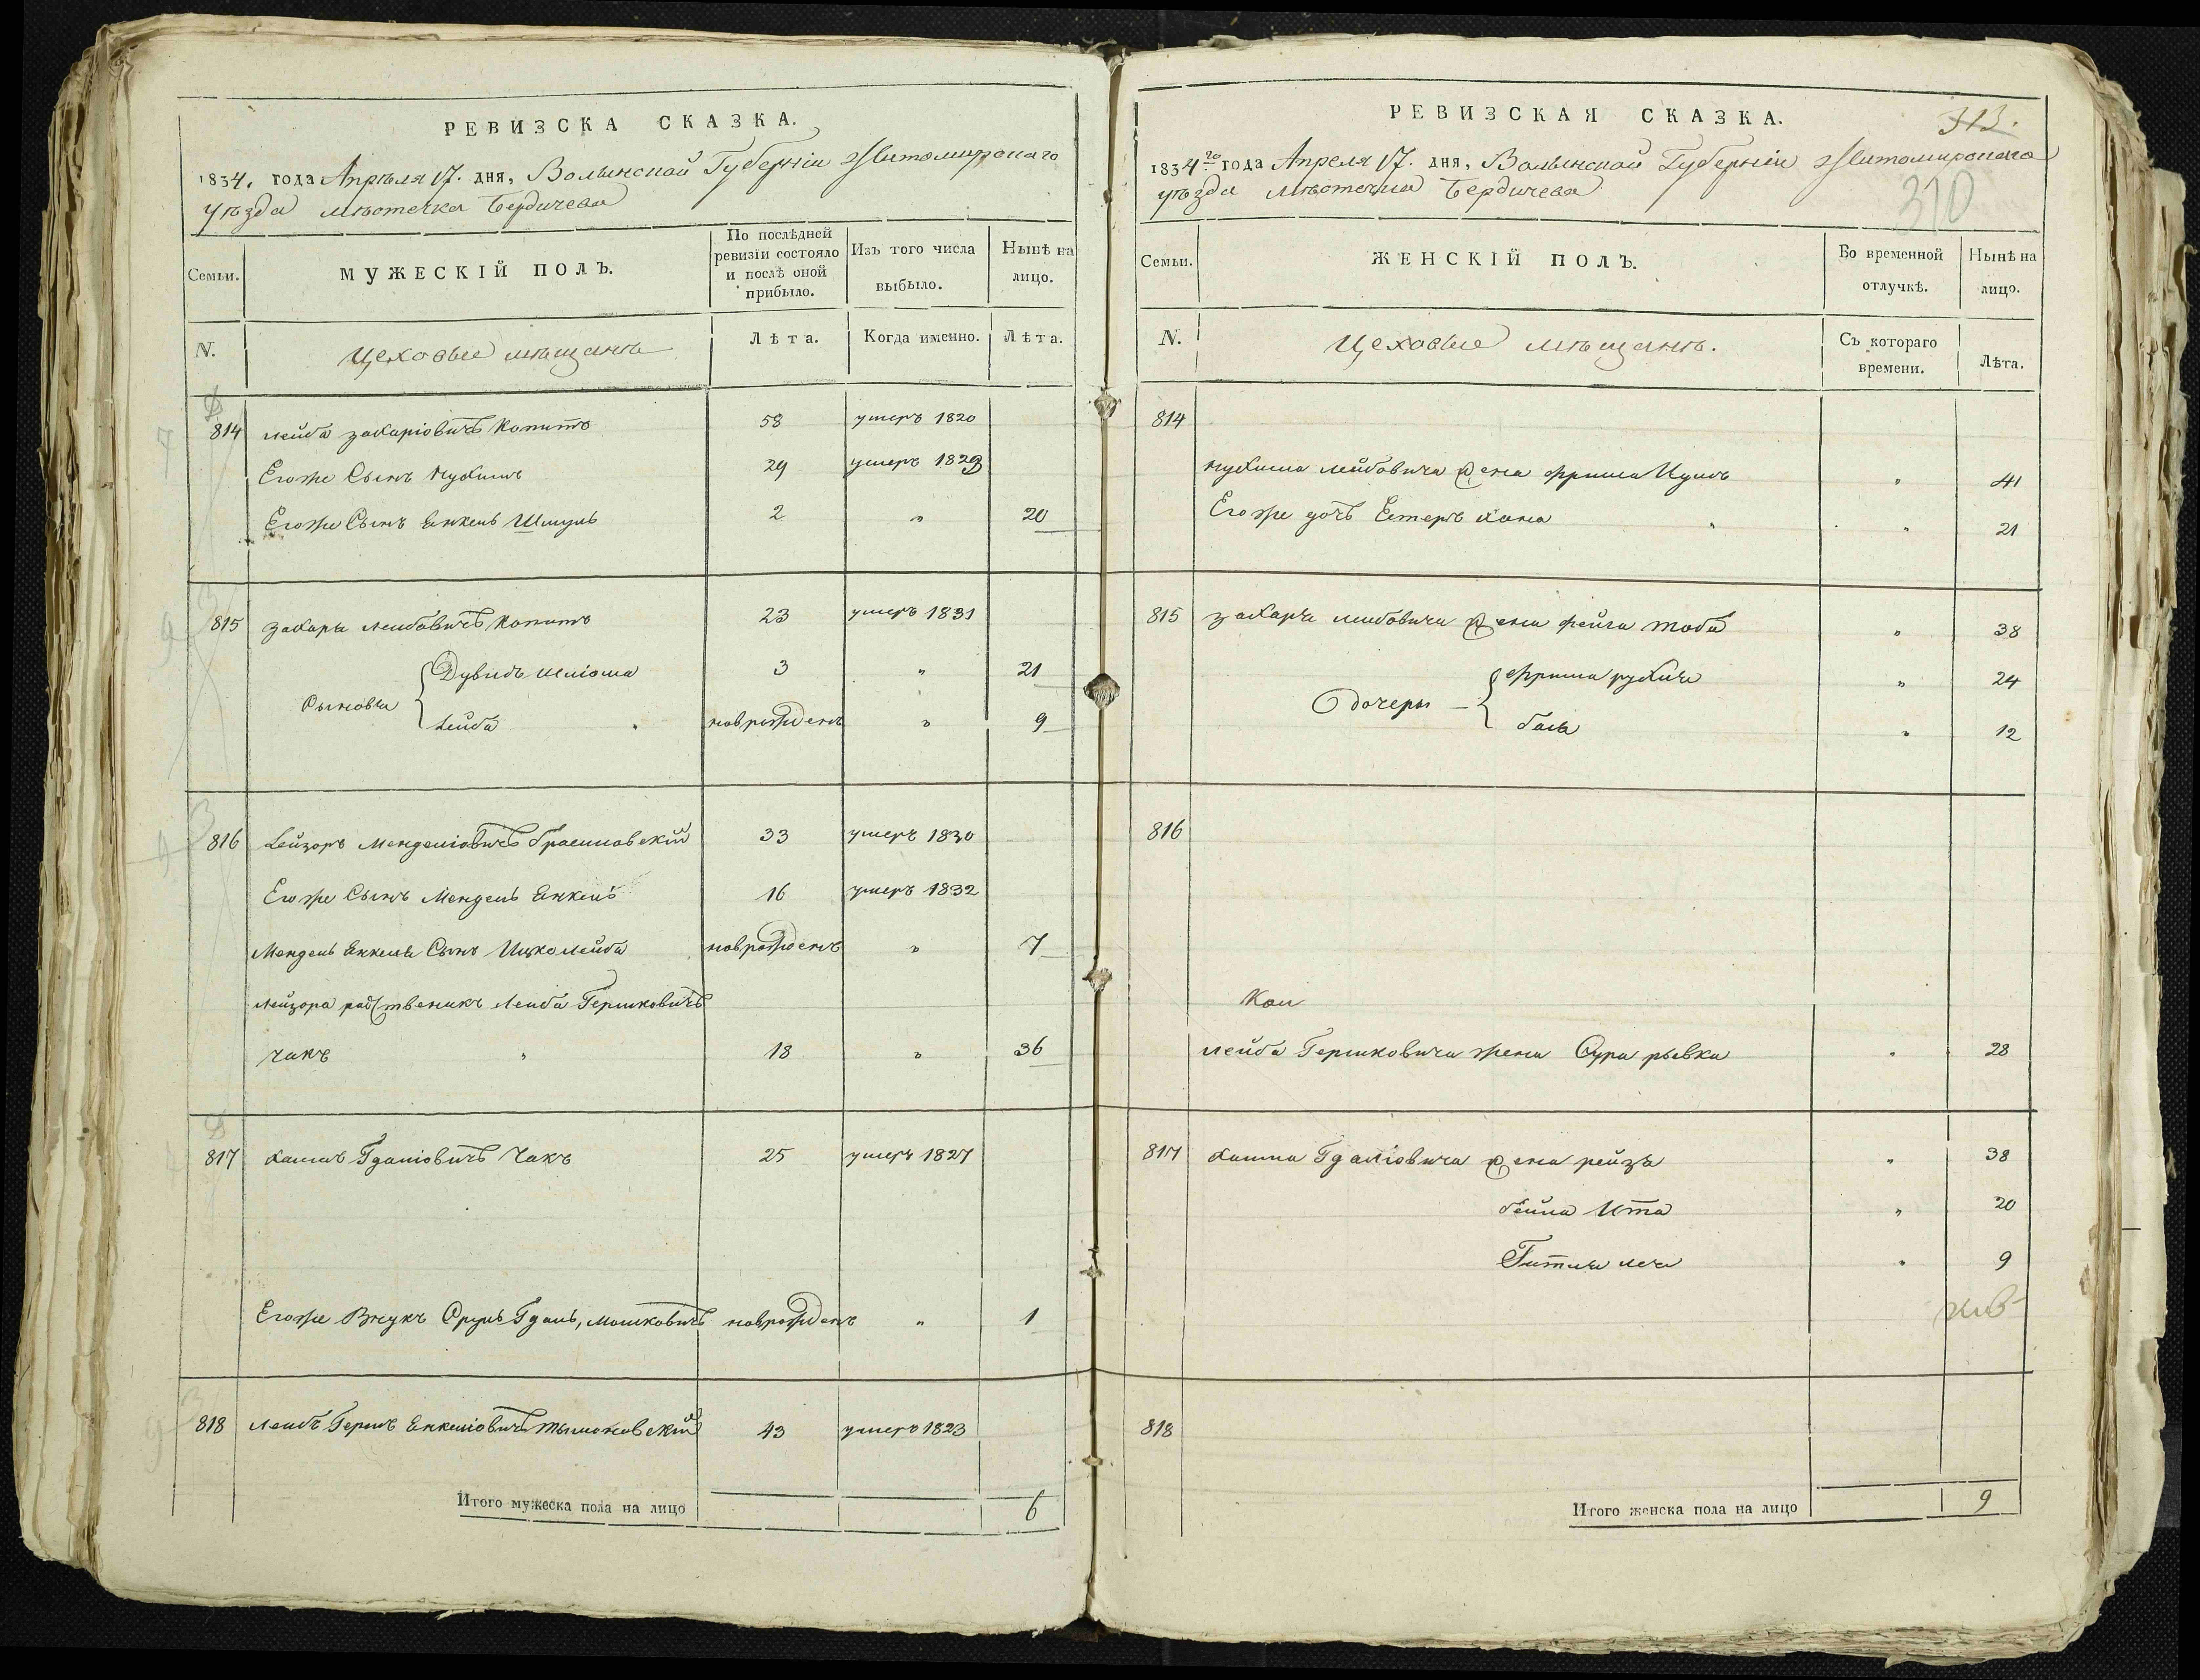 РЕВИЗСКА СКАЗКА.
1834. года Апрѣля 17. дня, Волынской Губерніи Житомирскаго
уѣзда мѣстечка Бердичева
Семьи.
МУЖЕСКІЙ ПОЛЪ.
По послѣдней ревизіи состояло и послѣ оной прибыло.
Изъ того числа выбыло.
Нынѣ на лицо.
N.
Цеховые мѣщане
Лѣта.
Когда именно.
Лѣта.
814 Лейба Захаріовичъ Копитъ 58 умеръ 1820
Егоже Сынъ Нухимъ 29 умеръ 1823
Егоже Сынъ Енкель Шмуль 2 " 20
815 Захарь Лейбовичъ Копитъ 23 умеръ 1831
Дувидъ Шліома 3 " 21
Сыновья
Лейба новорожденъ " 9
816 Лейзоръ Менделіовичъ 33 умеръ 1830
Егоже Сынъ Мендель Енкель 16 умеръ 1832
Мендель Енкеля Сынъ Ицко Лейба новрожденъ " 7
Лейзора родственикъ Лейба Гершковичъ
Чакъ " 18 " 36
817 Хаимъ Гдаліовичъ Чакъ 25 умеръ 1827
Егоже Внукъ Сруль Гдаль, Мошковичъ новрожденъ " 1
818 Лейбъ Гершъ Енкеліовичъ 43 умеръ 1823
Итого мужеска пола на лицо 6
РЕВИЗСКАЯ СКАЗКА.
313.
1834го года Апреля 17. дня, Волынской Губерніи Житомирскаго
уѣзда мѣстечка Бердичева
310
Семьи.
ЖЕНСКІЙ ПОЛЪ.
Во временной отлучкѣ.
Нынѣ на лицо.
N.
Цеховые мѣщане.
Съ котораго времени.
Лѣта.
814
Нухима Лейбовича жена Фрима " 41
Егоже дочь Естеръ Хана " " 21
815 Захаря Лейбовича жена Фейга Тоба " 38
Фрима Рухля " 24
дочеры
бася " 12
816
Лейба Гершковича жена Сура рывка " 28
817 Хаима Гдаліовича жена рейзя " 38
бейла Ита " 20
Гитля лея " 9
818
Итого женска пола на лицо 9